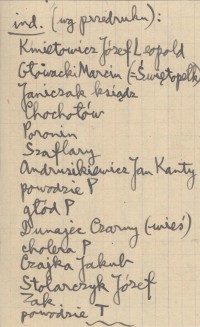 ind. (wg przedruku):
Kmietowicz Józef Leopold
Głowacki Marcin (=Świętopełk)
Janiczak ksiądz
Chochołów
Poronin
Szaflary
Andrusikiewicz Jan Kanty
powodzie P
głód P
Dunajec Czarny (-wieś)
cholera P
Czajka Jakub
Stolarczyk Józef
Żak
powodzie T